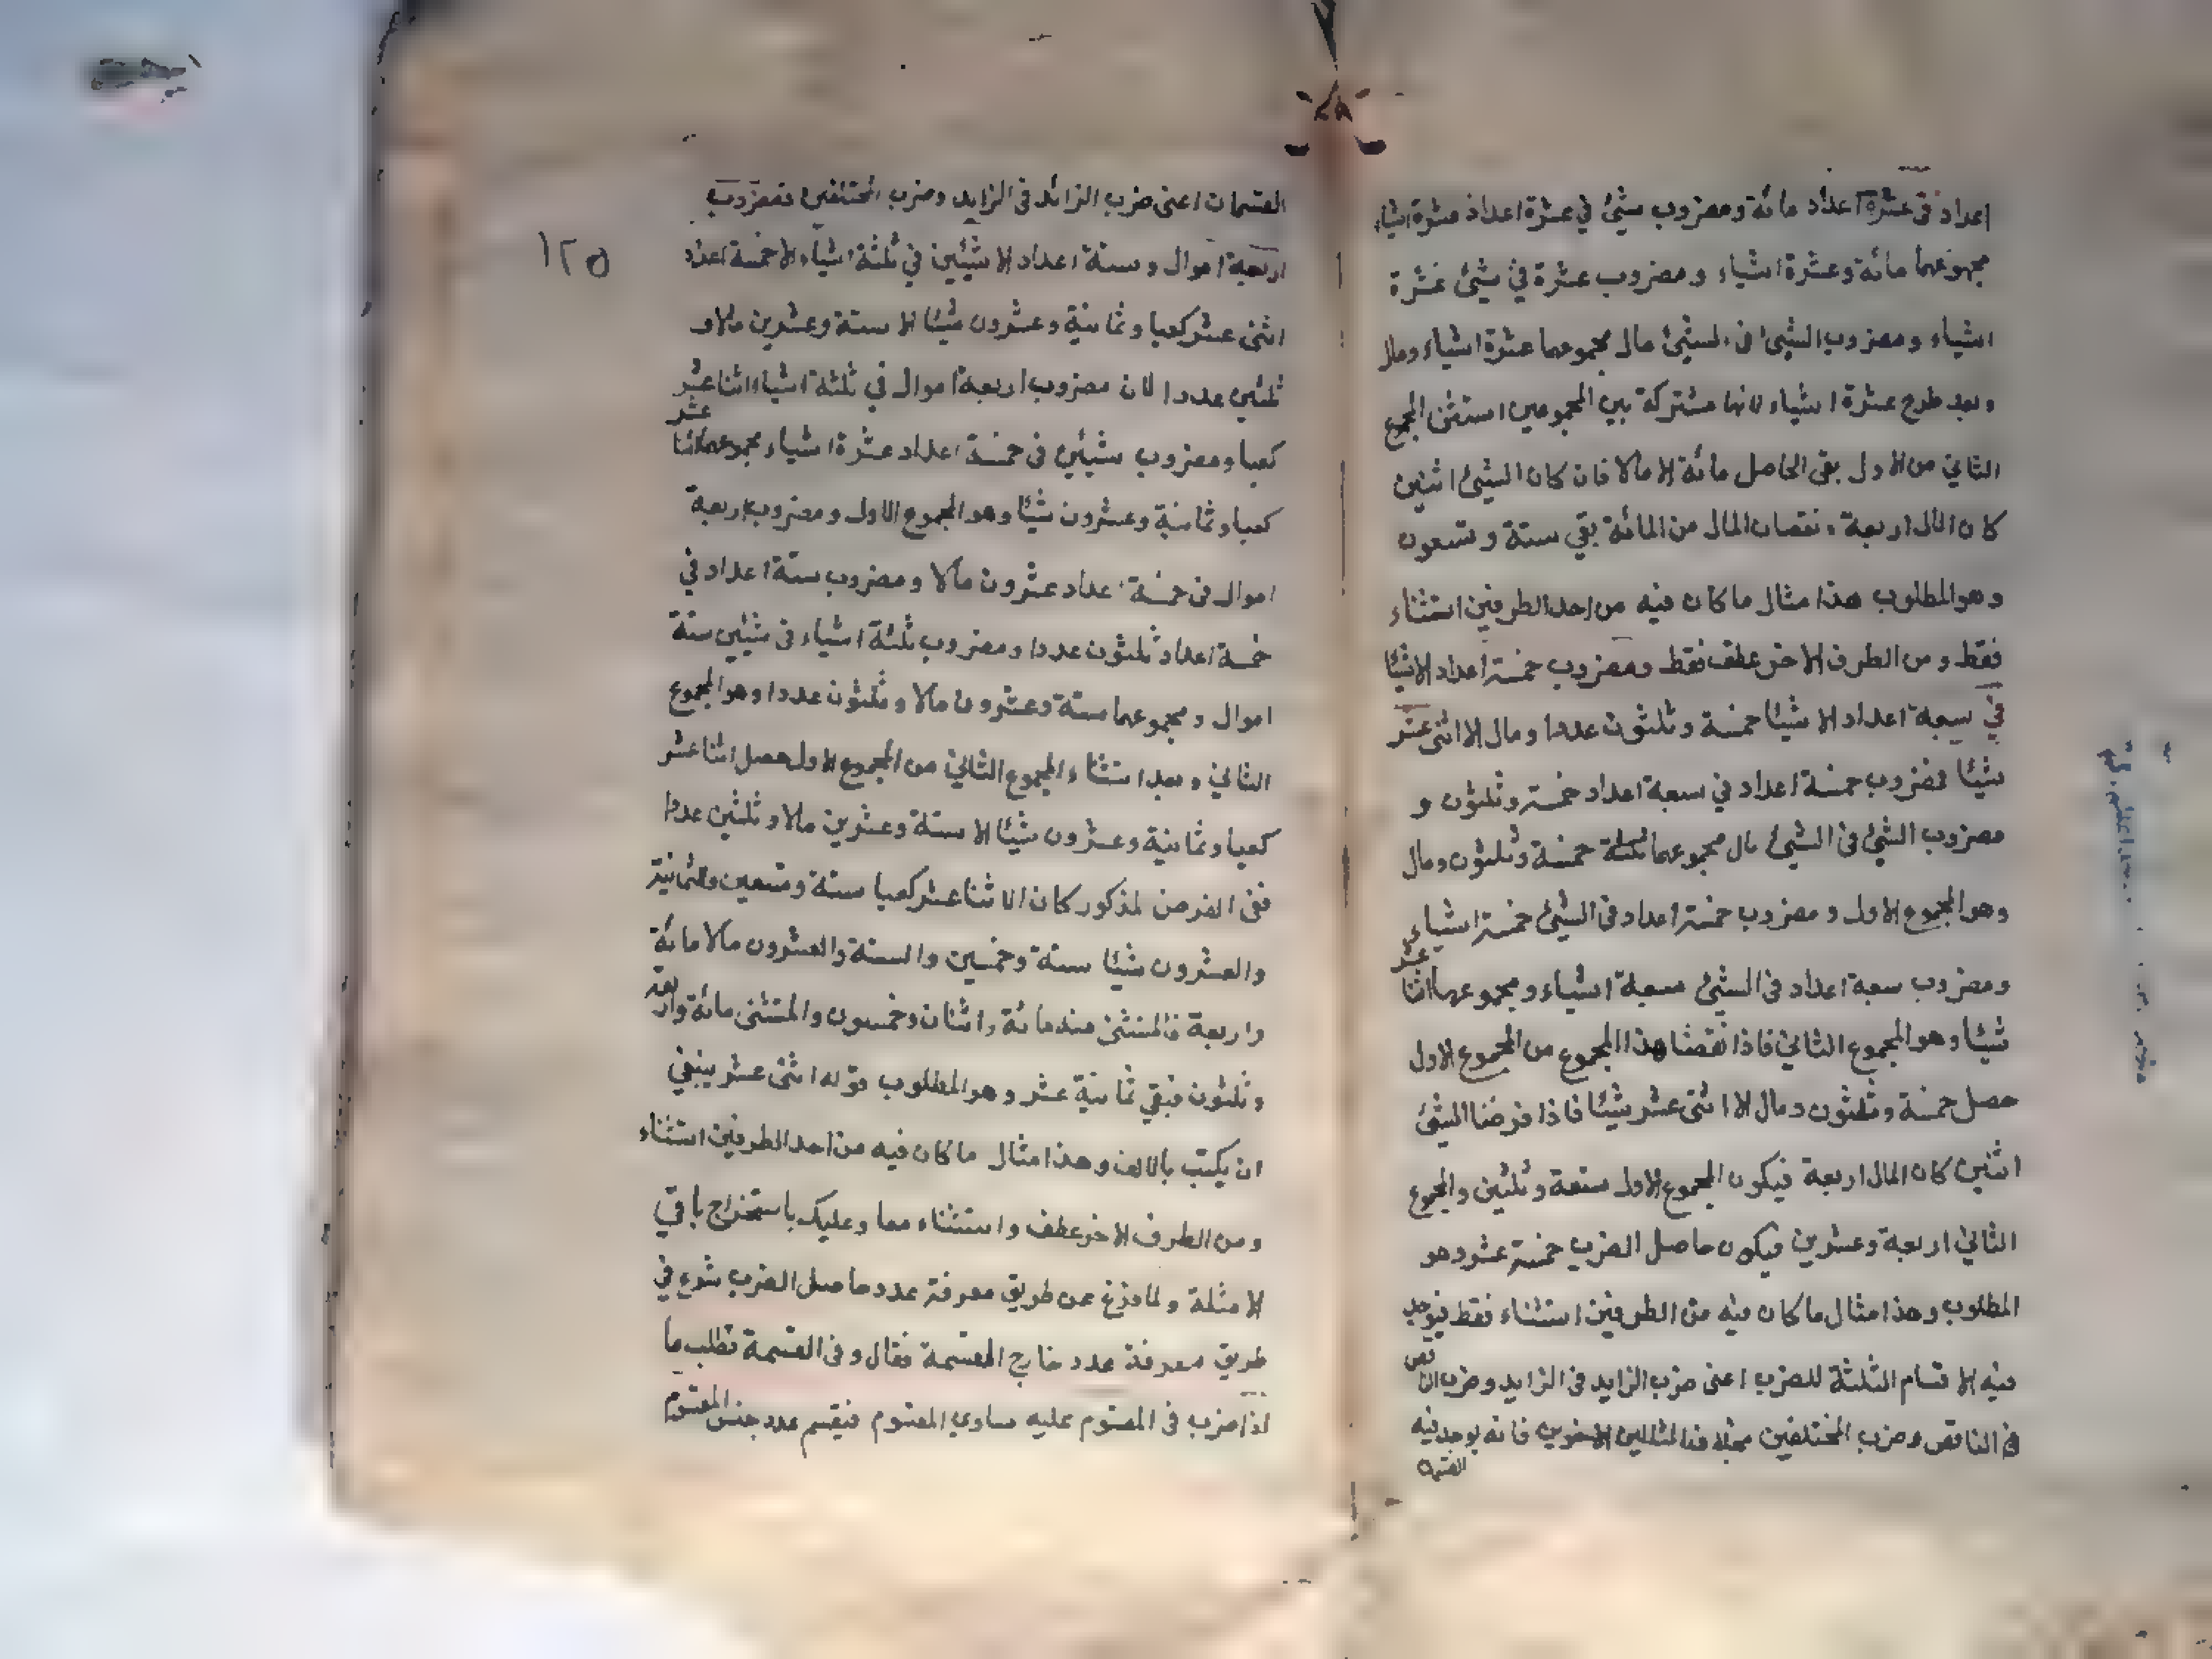 اعداد فى عشرة اعداد مائة ومضروب شئ في عشرة اعداد عشرة اشياء
مجموعهما مائة وعشرة اشياء ومضروب عشرة في شئ عشرة
اشياء ومضروب الشئ فى الشئ مال مجموعهما عشرة اشياء ومال
وبعد طرح عشرة اشياء لانها مشتركة بين المجموعين استثنى المجموع
الثاني من الاول بقى الحاصل مائة الا مالا فان كان الشئ اثنين
كان المال اربعة ونقصان المال من المائة بقي ستة وتسعون
وهو المطلوب هذا مثال ما كان فيه من احد الطرفين استثناء
فقط ومن الطرف الاخر عطف فقط ومضروب خمسة اعداد الا شيئا
في سبعة اعداد الا شيئا خمسة وثلثون عددا ومال الا اثنى عشر
شيئا فمضروب خمسة اعداد في سبعة اعداد خمسة وثلثون و
مضروب الشئ فى الشئ مال مجموعهما خمسة وثلثون ومال
وهو المجموع الاول ومضروب خمسة اعداد فى الشئ خمسة اشياء
ومضروب سبعة اعداد فى الشئ سبعة اشياء ومجموعهما اثنا عشر
شيئا وهو المجموع الثاني فاذا نقصنا هذا المجموع من المجموع الاول
حصل خمسة وثلثون ومال الا اثنى عشر شيئا فاذا فرضنا الشئ
اثنين كان المال اربعة فيكون المجموع الاول تسعة وثلثين والمجموع
الثاني اربعة وعشرين فيكون حاصل الضرب خمسة عشر وهو
المطلوب وهذا مثال ما كان فيه من الطرفين استثناء فقط فيوجد
فيه الاقسام الثلثة للضرب اعنى ضرب الزايد فى الزايد وضرب الناقص
في الناقص وضرب المختلفين بخلاف المثالين الاخرين فانه يوجد فيه
القسمان
١٢٥
القسمان اعنى ضرب الزائد فى الزايد وضرب المختلفين فمضروب
اربعة اموال وستة اعداد الا شيئين في ثلثة اشياء الا خمسة اعداد
اثنى عشر كعبا وثمانية وعشرون شيئا الا ستة وعشرين مالا و
ثلثين عددا لان مضروب اربعة اموال في ثلثة اشياء اثنا عشر
كعبا ومضروب شيئين فى خمسة اعداد عشرة اشياء مجموعهما اثنا عشر
كعبا وثمانية وعشرون شيئا وهو المجموع الاول ومضروب اربعة
اموال فى خمسة اعداد عشرون مالا ومضروب ستة اعداد في
خمسة اعداد ثلثون عددا ومضروب ثلثة اشياء فى شيئين ستة
اموال ومجموعهما ستة وعشرون مالا وثلثون عددا وهو المجموع
الثاني وبعد استثناء المجموع الثاني من المجموع الاول حصل اثنا عشر
كعبا وثمانية وعشرون شيئا الا ستة وعشرين مالا وثلثين عددا
ففى الفرض المذكور كان الاثنا عشر كعبا ستة وتسعين والثمانية
والعشرون شيئا ستة وخمسين والستة والعشرون مالا مائة
واربعة فالمستثنى منه مائة واثنان وخمسون والمستثنى مائة واربعة
وثلثون فبقي ثمانية عشر وهو المطلوب قوله اثنى عشر ينبغي
ان يكتب بالالف وهذا مثال ما كان فيه من احد الطرفين استثناء
ومن الطرف الاخر عطف واستثناء معا وعليك باستخراج باقي
الامثلة ولما فرغ عن طريق معرفة عدد حاصل الضرب شرع في
طريق معرفة عدد خارج القسمة فقال وفى القسمة تطلب ما
اذا ضرب فى المقسوم عليه ساوي المقسوم فيقسم عدد جنس المقسوم